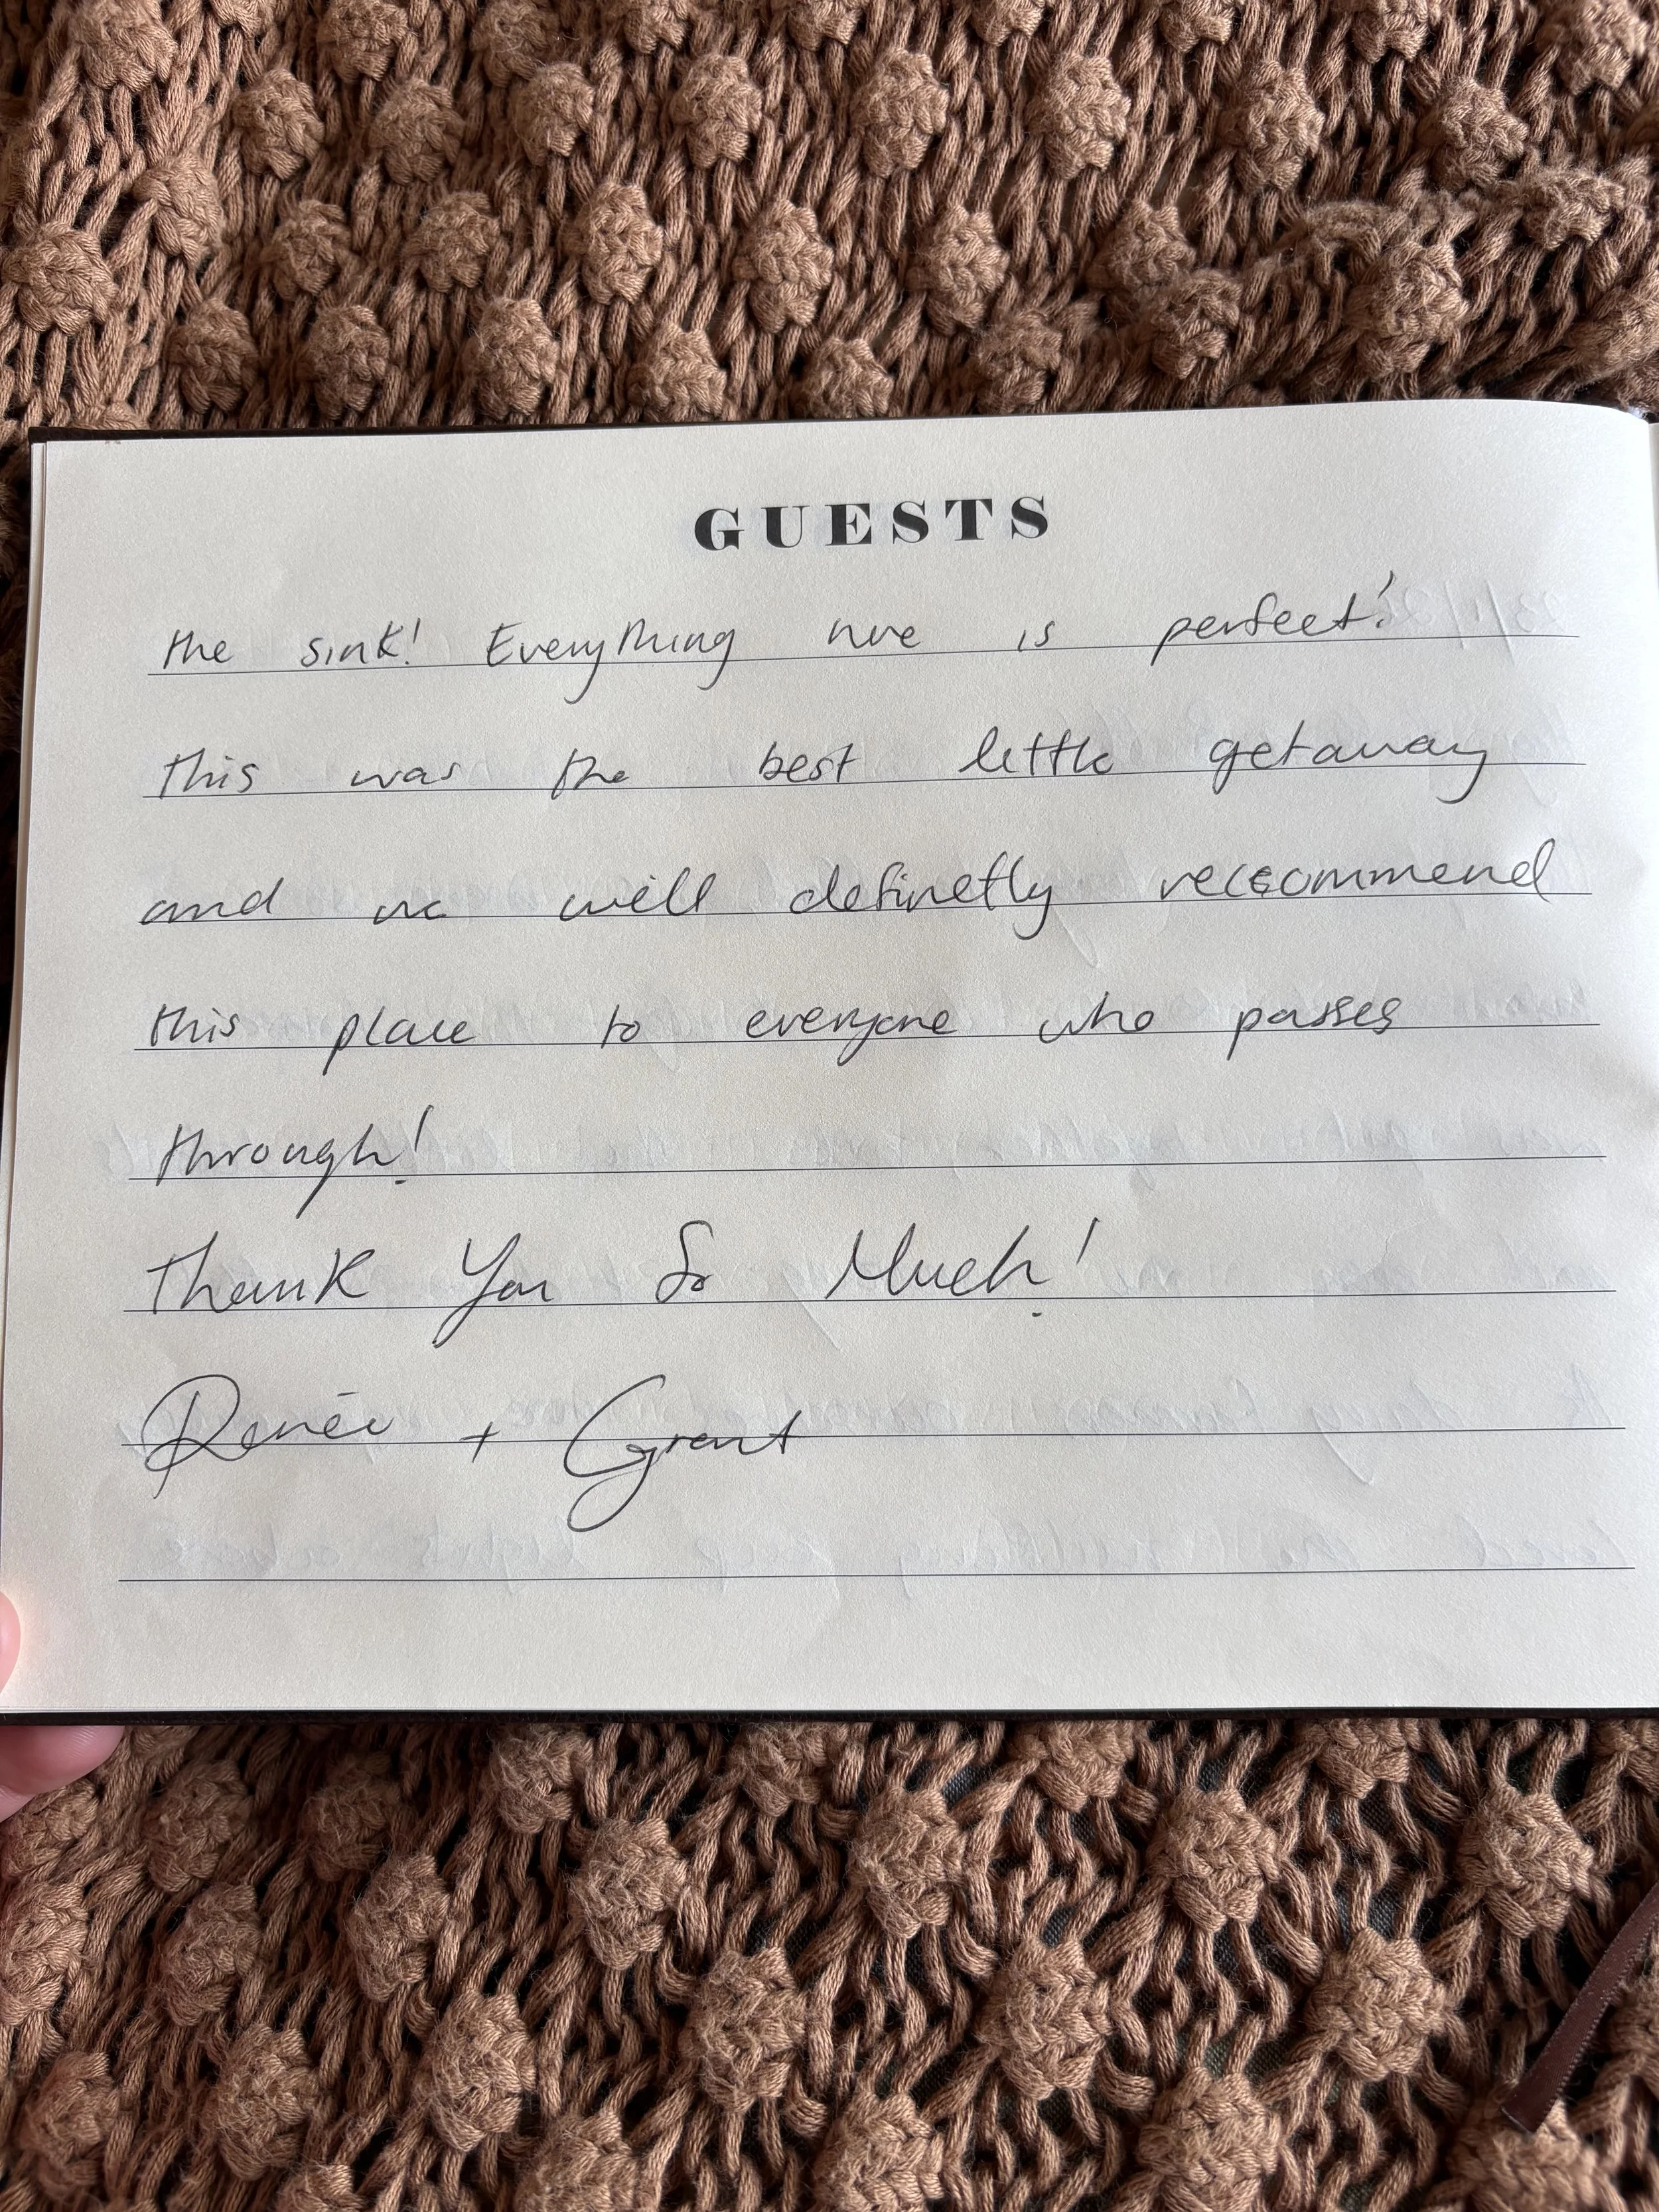 GUESTS
the sink! Everything here is perfect!
this was the best little getaway
and we will definetly reccommend
this place to everyone who passes
through!
Thank You So Much!
Renée + Grant